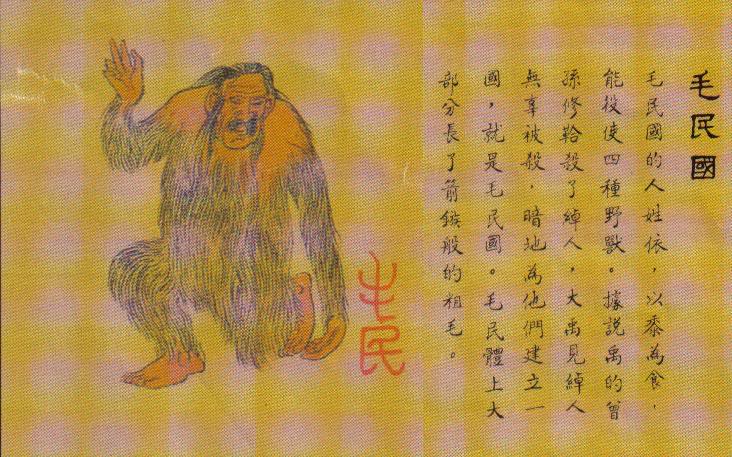 毛民國
毛民國的人姓依，以黍為食，
能役使四種野獸。據說禹的曾
孫修鞈殺了綽人，大禹見綽人
無辜被殺，暗地為他們建立一
國，就是毛民國。毛民體上大
部分長了箭鏃般的粗毛。
毛民